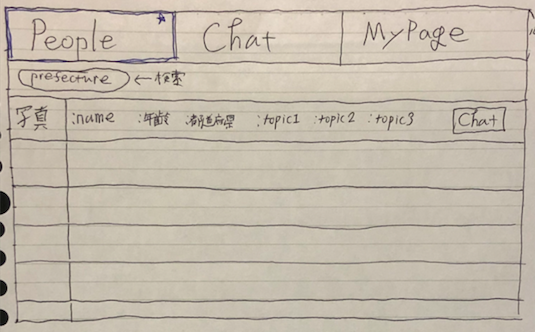 People Chat MyPage
prefecture ← 検索
写真 :name :年齢 :都道府県 :topic1 :topic2 :topic3 Chat